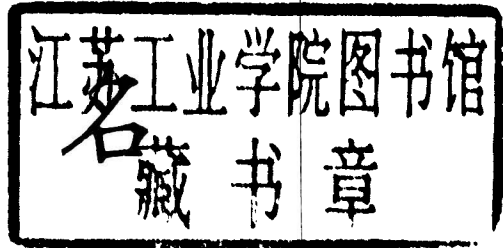 江苏工业学院图书馆
名
藏书章